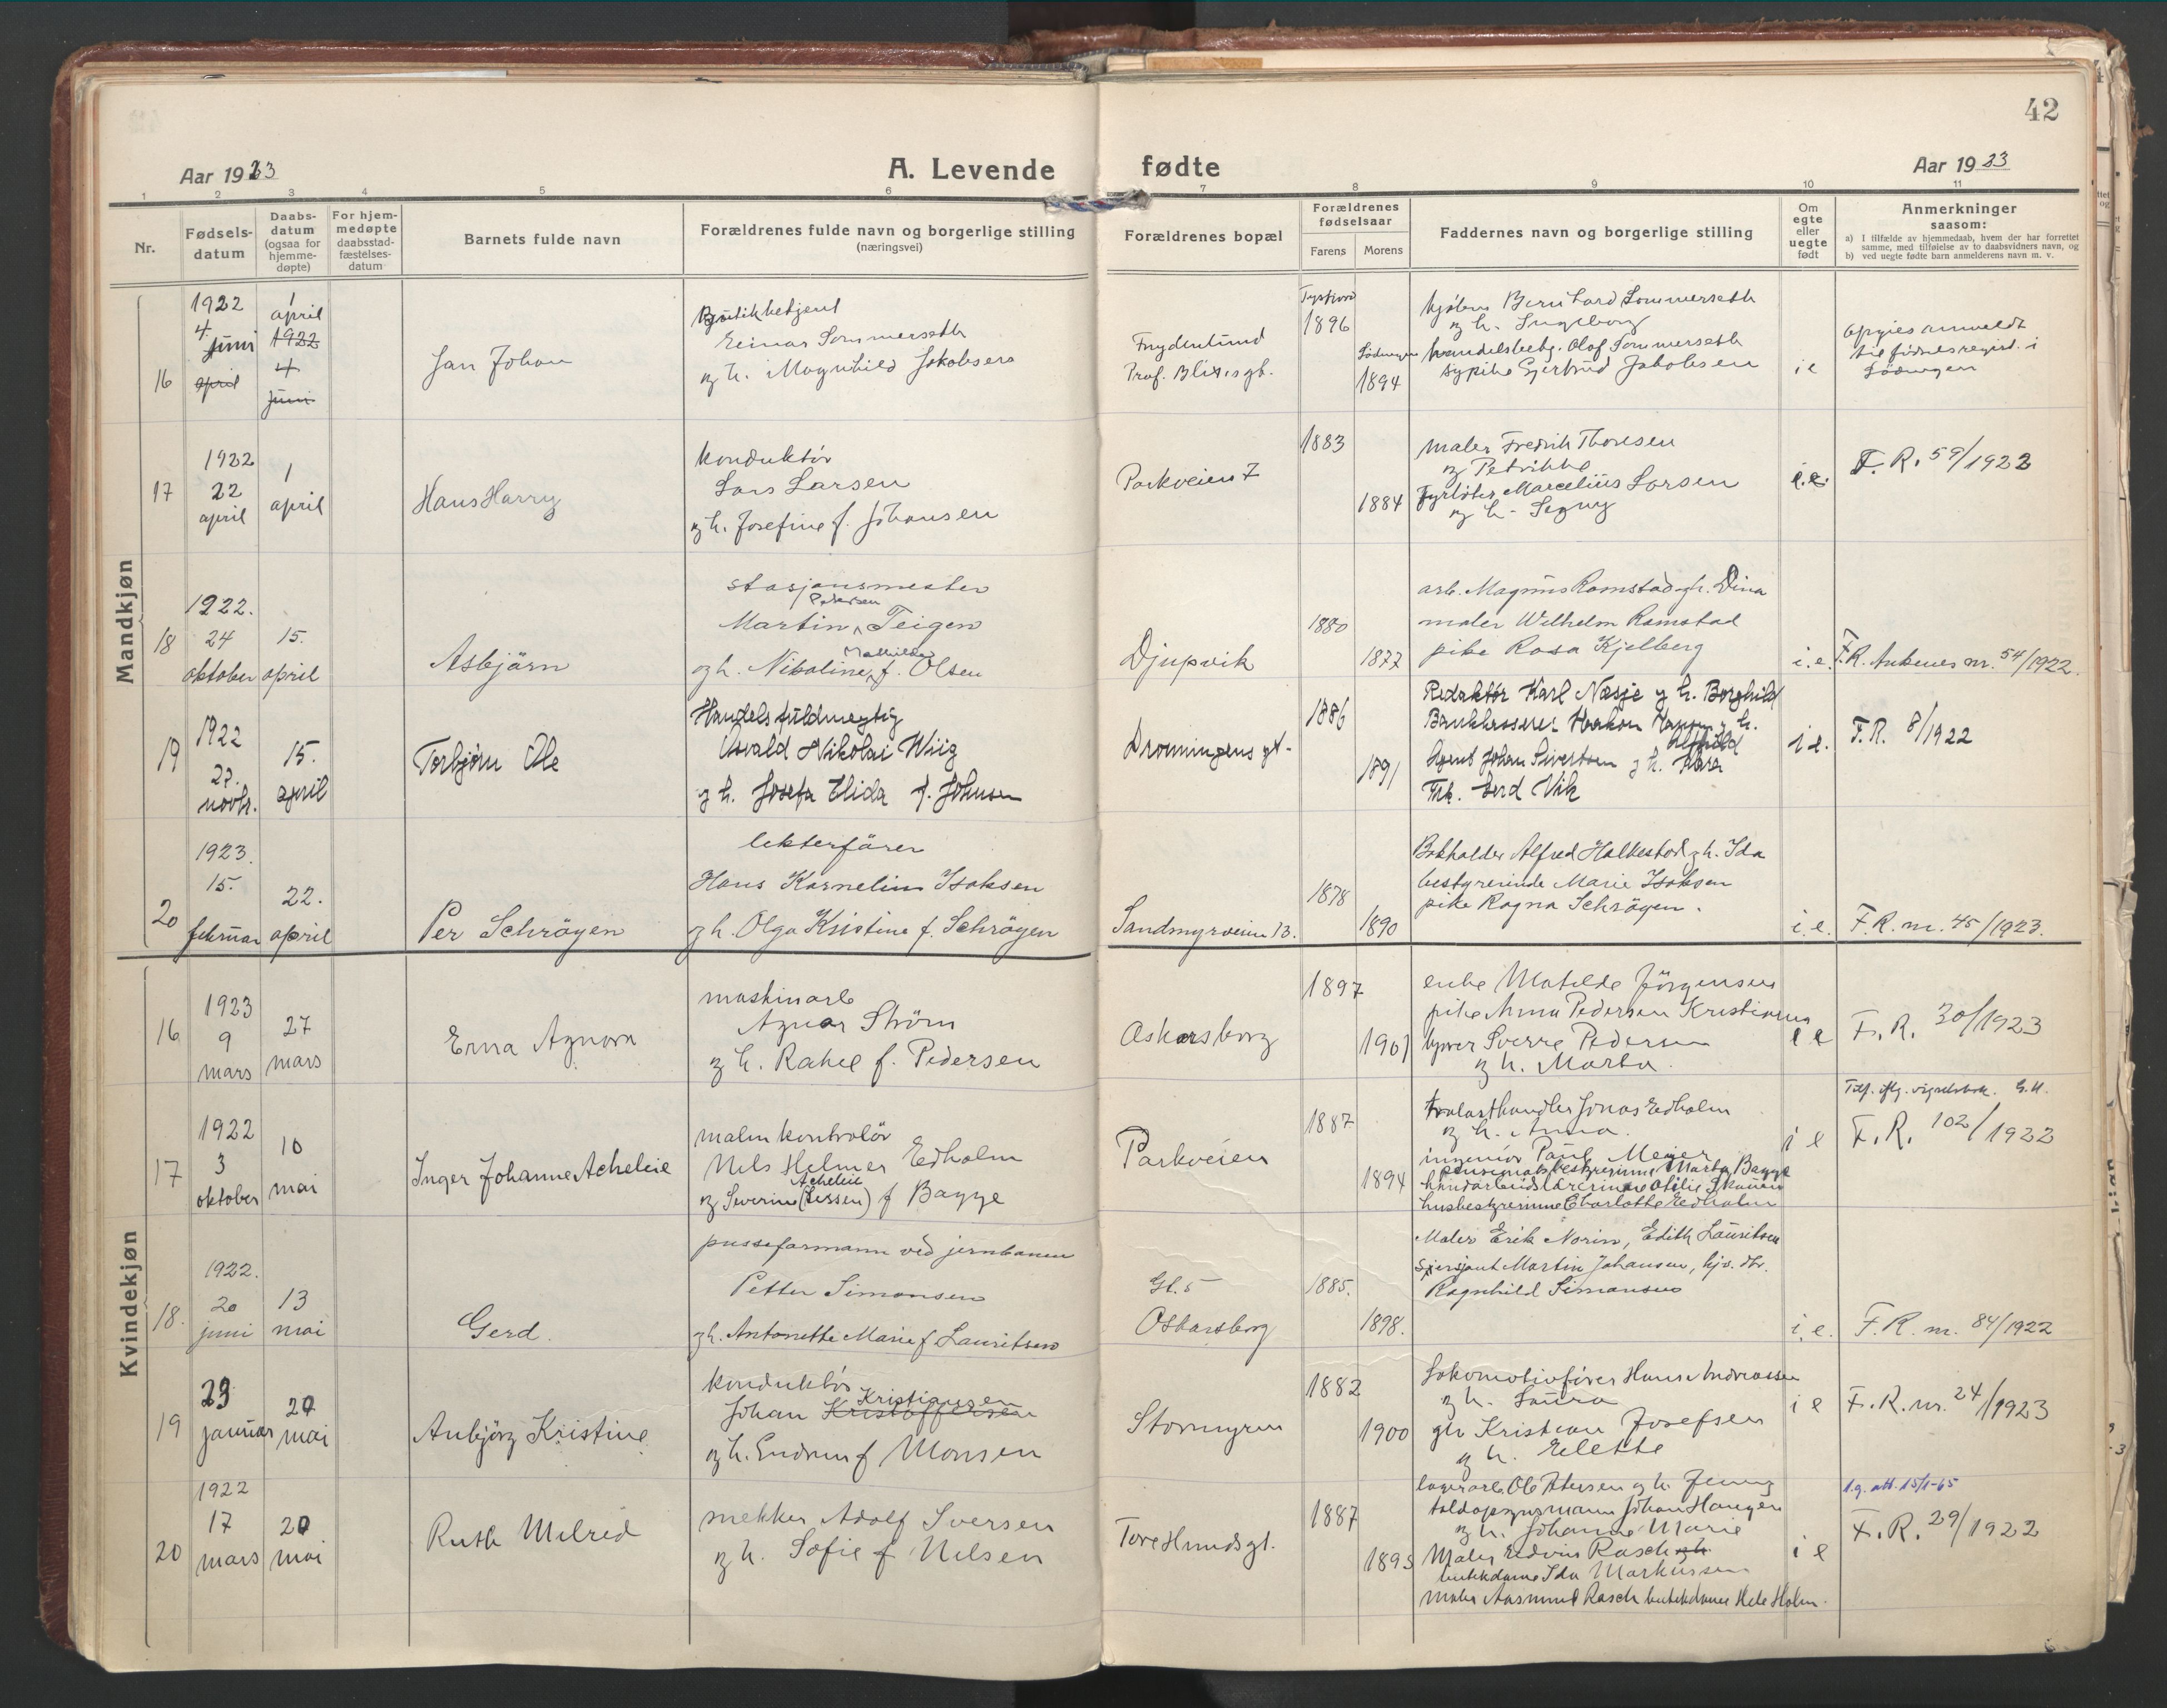 42
Aar 1923
A. Levende fødte
Aar 1923
1 2 3 4 5 6 7 8 9 10 11
Nr.
Fødselsdatum
Daabsdatum (ogsaa for hjemmedøpte)
For hjemmedøpte daabsstadfæstelsesdatum
Barnets fulde navn
Forældrenes fulde navn og borgerlige stilling (næringsvei)
Forældrenes bopæl
Forældrenes fødselsaar
Farens
Morens
Faddernes navn og borgerlige stilling
Om egte eller uegte født
Anmerkninger saasom:
a) I tilfælde av hjemmedaab, hvem der har forrettet samme, med tilføielse av to daabsvidners navn, og
b) ved uegte fødte barn anmelderens navn m. v.
Mandkjøn
16
1922
4 juni
april
1 april
1922
4
juni
Jan Johan
Butikbetjent
Einar Sommerseth
og h. Magnhild Jakobsen
Frydenlund
Prof. Blixsgt.
Tysfjord
1896
Lødingen
1894
Bernhard Sommerseth
og h. Ingeborg
handelsbetj. Olaf Sommerseth
sypike Gjertrud Jakobsen
i e
opgies anmeldt
til fødselsregist. i
Lødingen
17
1922
22
april
1
april
Hans Harry
konduktør
Lars Larsen
og h. Josefine f. Johansen
Parkveien 7
1883
1884
maler Fredrik Thoresen
og Petrikke
Fyrbøter Marcelius Larsen
og h. Signy
i.e.
F.R. 59/1922
18
1922.
24
oktober
15.
april
Asbjørn
stasjonsmester
Pedersen
Martin Teigen
Mathilde
og h. Nikoline f. Olsen
Djupvik
1880
1877
arb. Magnus Ramstad og h. Dina
maler Wilhelm Ramstad
pike Rosa Kjelberg
i.e.
F.R. Ankenes nr. 54/1922.
19
1922
27.
novbr.
15.
april
Torbjørn Ole
Handelsfuldmegtig
Osvald Nikolai Wiig
og h. Josefa Elida f. Johnsen
Dronningens gt.
1886
1891
Redaktør Karl Næsje og h. Borghild
Bankkasserer Haakon og h.
Alfhild
Agent Johan Sivertsen og h. Klara
Frk. Gerd Vik
i e.
F.R. 8/1922
20
1923.
15.
februar
22.
april
Per Schrøyen
lekterfører
Hans Kornelius Isaksen
og h. Olga Kristine f. Schrøyen
Sandmyrveien 13.
1878
1890
Bokholder Alfred Halkestad og h. Ida
bestyrerinde Marie Isaksen
pike Ragna Schrøyen.
i.e.
F.R. nr. 45/1923.
Kvindekjøn
16
1923
9
mars
27
mars
Erna Agnora
maskinarb
Agnar Strøm
og h. Rakel f. Pedersen
Oskarsborg
1897
1901
enke Matilde Jørgensen
pike Anna Pedersen Kristiania
Sverre Pedersen
og h. Marta.
i e
F.R. 30/1923
17
1922
3
oktober
10
mai
Inger Johanne Acheleie
malmkontrolør
Nils Helmer Edholm
Acheleie
og Severine (Lessen) f Bagge
Parkveien
1887
1894
trælasthandler Jonas Edholm
og h. Anna.
ingeniør Paul Meyer
pensionatsbestyrerinne Marta Bagge
handarbeidslærerinne Otilie Skaaren
husbestyrerinne Charlotte Edholm
i e
F.R. 102/1922
18.
1922.
20
juni
13
mai
Gerd.
pusseformann ved jernbanen
Petter Simonsen
og h. Antonette Marie f Lauritsen
Gt. 5
Oskarsborg
1885.
1898.
Maler Erik Norin, Edith Lauritsen
Sersjant Martin Johansen, hjv. dtr.
Ragnhild Simonsen
i.e.
F.R. nr. 84/1922
19
23
januar
20
mai
Anbjørg Kristine
konduktør
Kristiansen
Johan Kristoffersen
og h. Gudrun f Monsen
Stormyren
1882
1900
Lokomotivfører Hans Andreassen
og h. Laura
Kristian Josefsen
og h. Elette
i e
F.R. nr. 24/1923
20
1922
17
mars
20
mai
Ruth Milred
snekker Adolf Iversen
og h. Sofie f Nilsen
Tore Hundsgt.
1887
1893
lagerarb. Ole Petersen og h. Jenny
toldopsynsmann Johan Haugen
og h. Johanne Marie
Maler Edvin Rasch og h.
butikdame Ida Markussen
maler Aasmund Rasch butikdame Hele Holm.
i e
l.g. att. 15/1-65
F.R. 29/1922